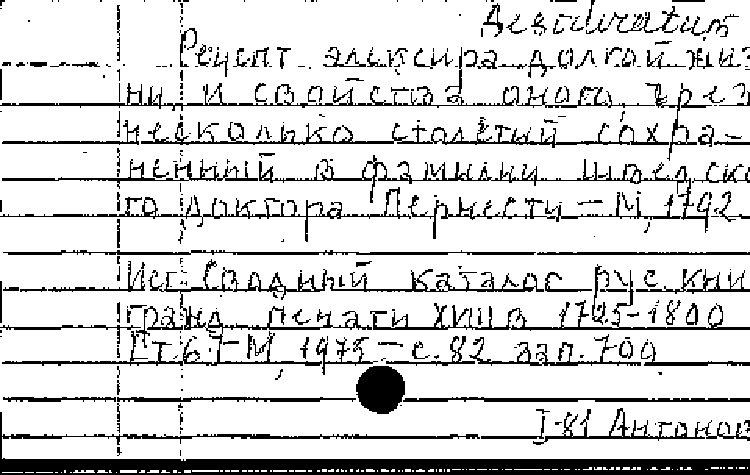 Desideratum
Рецепт элексира долгой жиз
ни, и свойства оного, чрез
несколько столетий сохра-
ненный в фамилии шведско
го доктора Пернести – М, 1792.
Ист: Сводный каталог рус. кни
гражд. печати XVIII в 1725-1800
М, 1975 – с. 82 зап. 700
I-81 Антонов